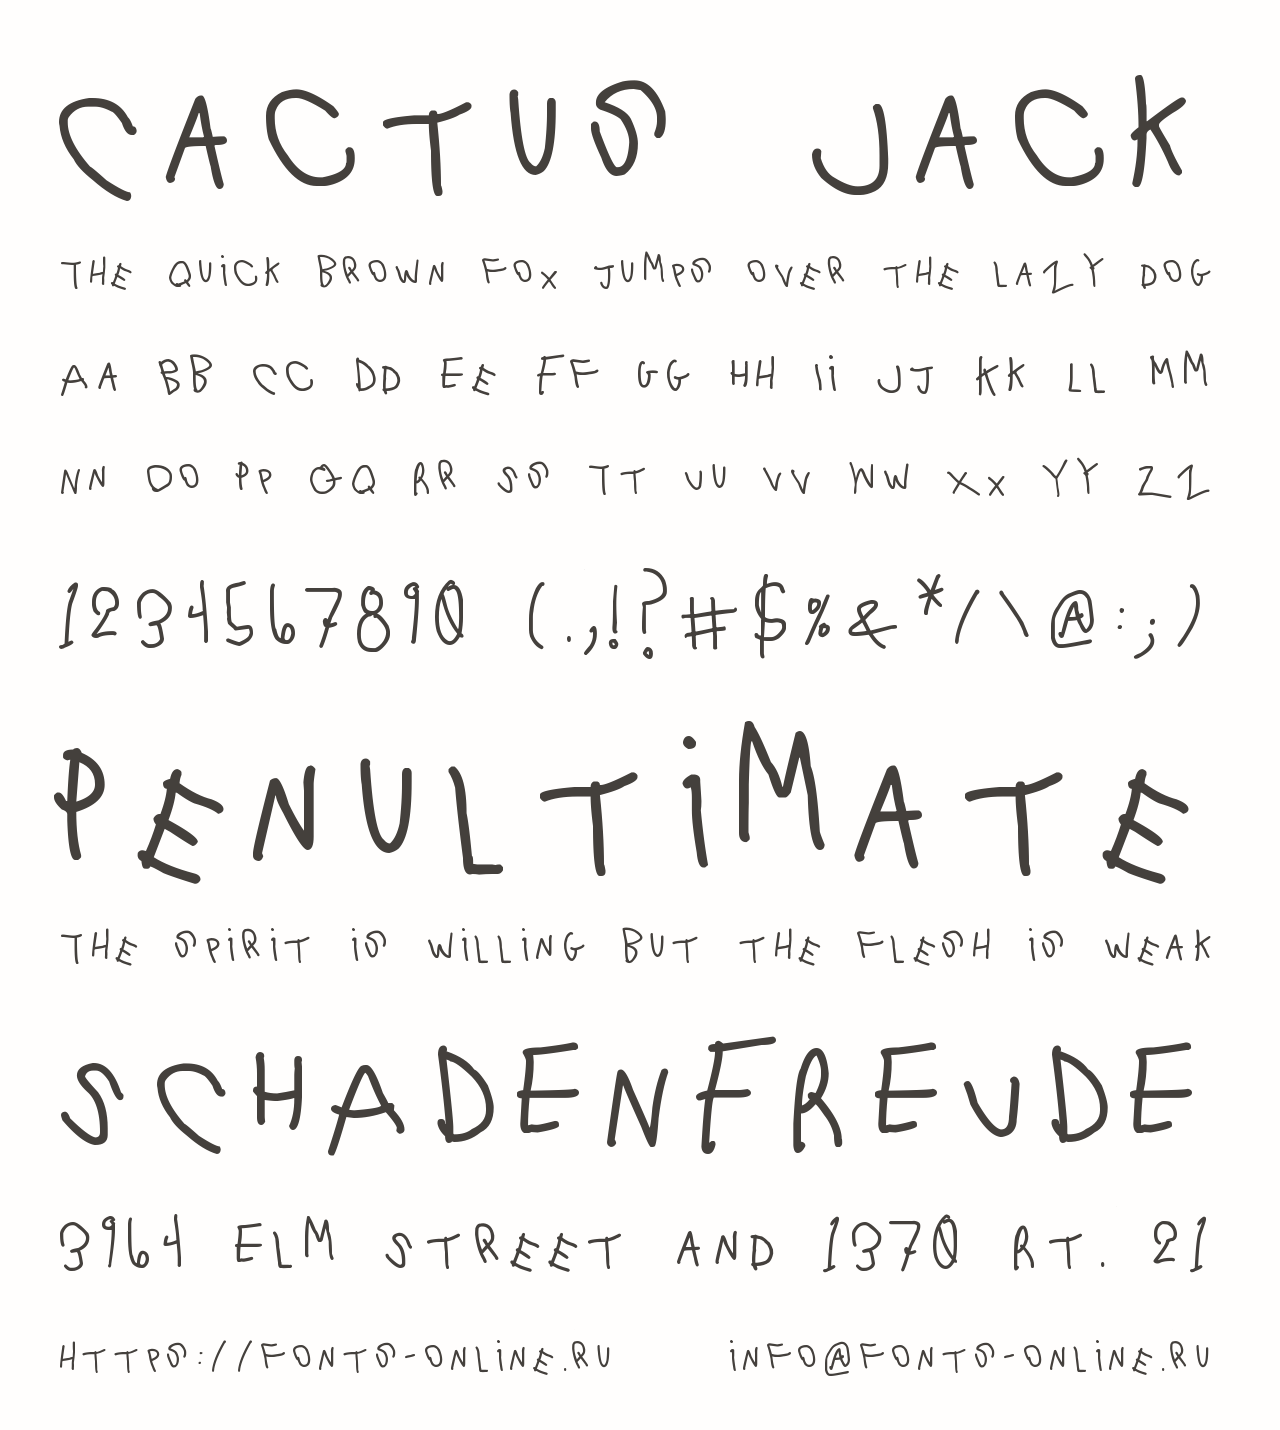 CACTUS JACK
THE QUiCK BROWN FOX JUMPS OVER THE LAZY DOG
AA BB CC DD EE FF GG HH Ii JJ KK LL MM
NN OO PP QQ RR SS TT UU VV WW XX YY ZZ
1234567890 (.,!?#$%&*/\@:;)
PENULTiMATE
THE SPiRiT iS WiLLiNG BUT THE FLESH iS WEAK
SCHADENFREUDE
3964 ELM STREET AND 1370 RT. 21
HTTPS://FONTS-ONLiNE.RU iNFO@FONTS-ONLiNE.RU